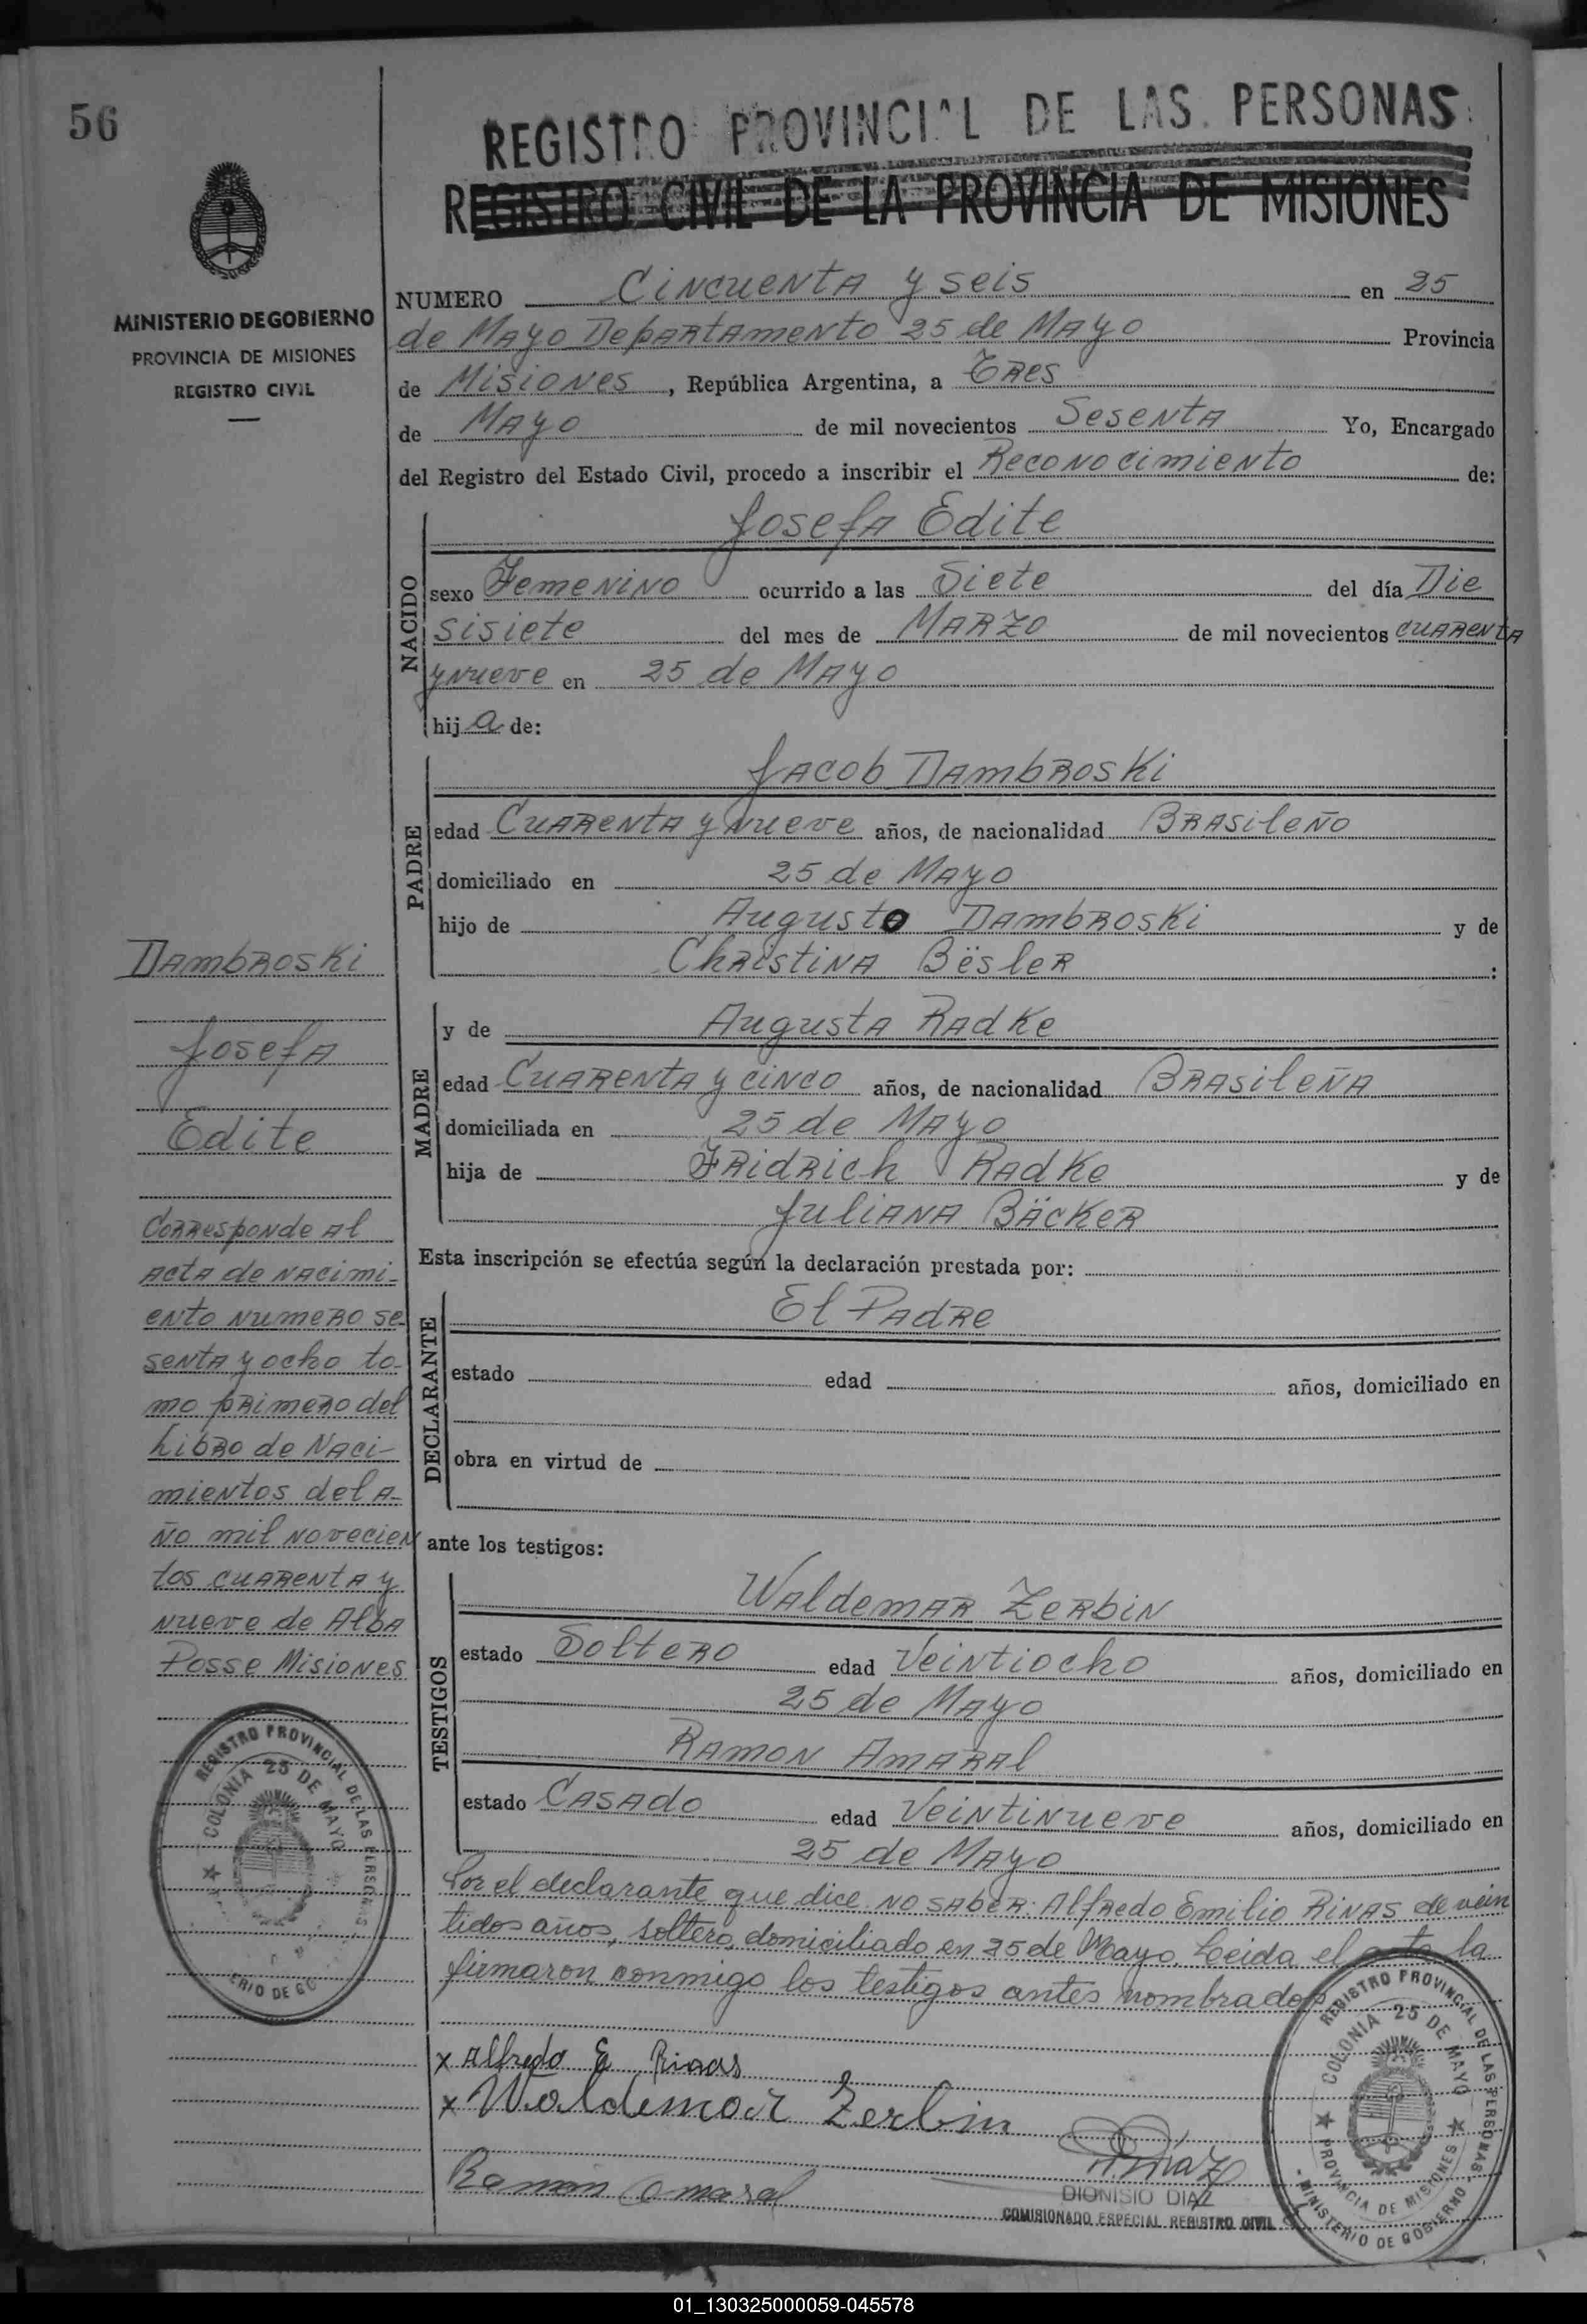 56
REGISTRO PROVINCIAL DE LAS PERSONAS
REGISTRO CIVIL DE LA PROVINCIA DE MISIONES
MINISTERIO DE GOBIERNO
PROVINCIA DE MISIONES
REGISTRO CIVIL
NUMERO Cincuenta y seis en 25
de Mayo Departamento 25 de Mayo Provincia
de Misiones, República Argentina, a Tres
de Mayo de mil novecientos Sesenta Yo, Encargado
del Registro del Estado Civil, procedo a inscribir el Reconocimiento de:
NACIDO
Josefa Edite
sexo Femenino ocurrido a las Siete del día Die
sisiete del mes de Marzo de mil novecientos cuarenta
y nueve en 25 de Mayo
hija de:
PADRE
Jacob Dambroski
edad Cuarenta y nueve años, de nacionalidad Brasileño
domiciliado en 25 de Mayo
hijo de Augusto Dambroski y de
Christina Bësler :
MADRE
y de Augusta Radke
edad Cuarenta y cinco años, de nacionalidad Brasileña
domiciliada en 25 de Mayo
hija de Fridrich Radke y de
Juliana Bäcker
Esta inscripción se efectúa según la declaración prestada por:
DECLARANTE
El Padre
estado edad años, domiciliado en
obra en virtud de
ante los testigos:
TESTIGOS
Waldemar Zerbin
estado Soltero edad Veintiocho años, domiciliado en
25 de Mayo
Ramon Amaral
estado Casado edad Veintinueve años, domiciliado en
25 de Mayo
Por el declarante que dice no saber: Alfredo Emilio Rinas de vein
tidos años, soltero, domiciliado en 25 de Mayo. Leida el acta la
firmaron conmigo los testigos antes nombrados
x Alfredo E Rinas
x Waldemar Zerbin
Ramon Amaral
DIONISIO DIAZ
COMISIONADO ESPECIAL REGISTRO CIVIL
Dambroski
Josefa
Edite
Corresponde al
acta de nacimi-
ento numero se-
senta y ocho to-
mo primero del
Libro de Naci-
mientos del a-
ño mil novecien
tos cuarenta y
nueve de Alba
Posse Misiones
REGISTRO PROVINCIAL DE LAS PERSONAS
COLONIA 25 DE MAYO
REGISTRO PROVINCIAL DE LAS PERSONAS
COLONIA 25 DE MAYO
PROVINCIA DE MISIONES
MINISTERIO DE GOBIERNO
01_130325000059-045578